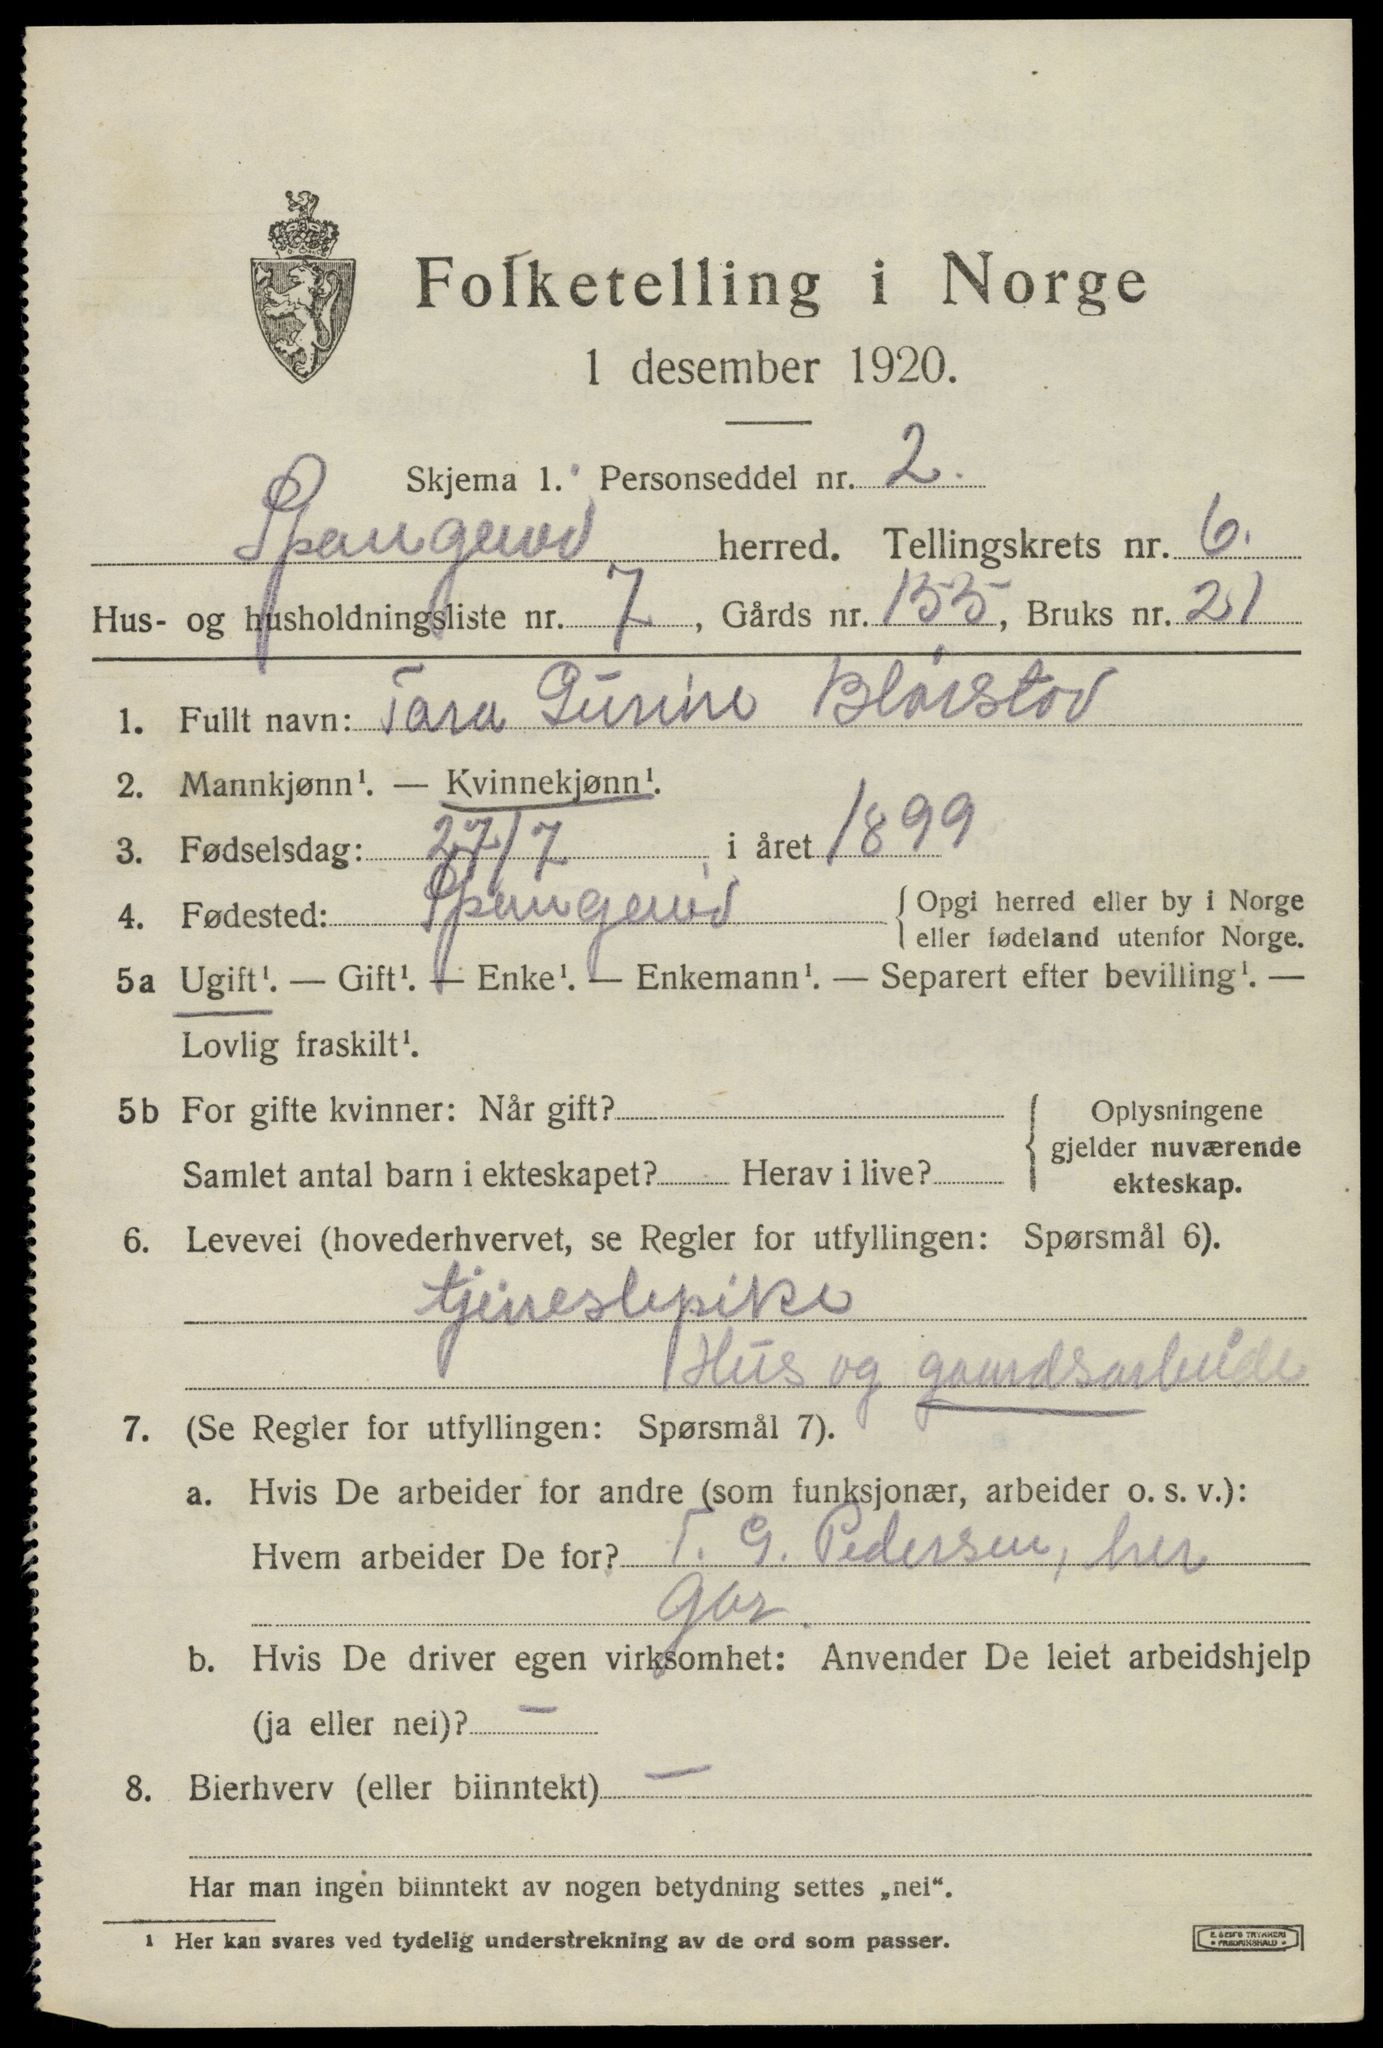 Folketelling i Norge
1 desember 1920.
Skjema 1. Personseddel nr. 2.
Spangereid herred. Tellingskrets nr. 6.
Hus- og husholdningsliste nr. 7, Gårds nr. 155, Bruks nr. 21
1. Fullt navn: Tara Gurine
2. Mannkjønn¹. — Kvinnekjønn¹.
3. Fødselsdag: 27/7 i året 1899
4. Fødested: Spangereid {Opgi herred eller by i Norge
eller fødeland utenfor Norge.
5a Ugift¹. — Gift¹. — Enke¹. — Enkemann¹. — Separert efter bevilling¹. —
Lovlig fraskilt¹.
5b For gifte kvinner: Når gift? {Oplysningene
gjelder nuværende
Samlet antal barn i ekteskapet? Herav i live?
ekteskap.
6. Levevei (hovederhvervet, se Regler for utfyllingen: Spørsmål 6).
tjenestepike
Hus og gaardsarbeide
7. (Se Regler for utfyllingen: Spørsmål 7).
a. Hvis De arbeider for andre (som funksjonær, arbeider o. s. v.):
Hvem arbeider De for? T. G. Pedersen, her
gar.
b. Hvis De driver egen virksomhet: Anvender De leiet arbeidshjelp
(ja eller nei)? —
8. Bierhverv (eller biinntekt) —
Har man ingen biinntekt av nogen betydning settes „nei“.
¹ Her kan svares ved tydelig understrekning av de ord som passer.
E. SEM'S TRYKKERI
• FREDRIKSHALD •